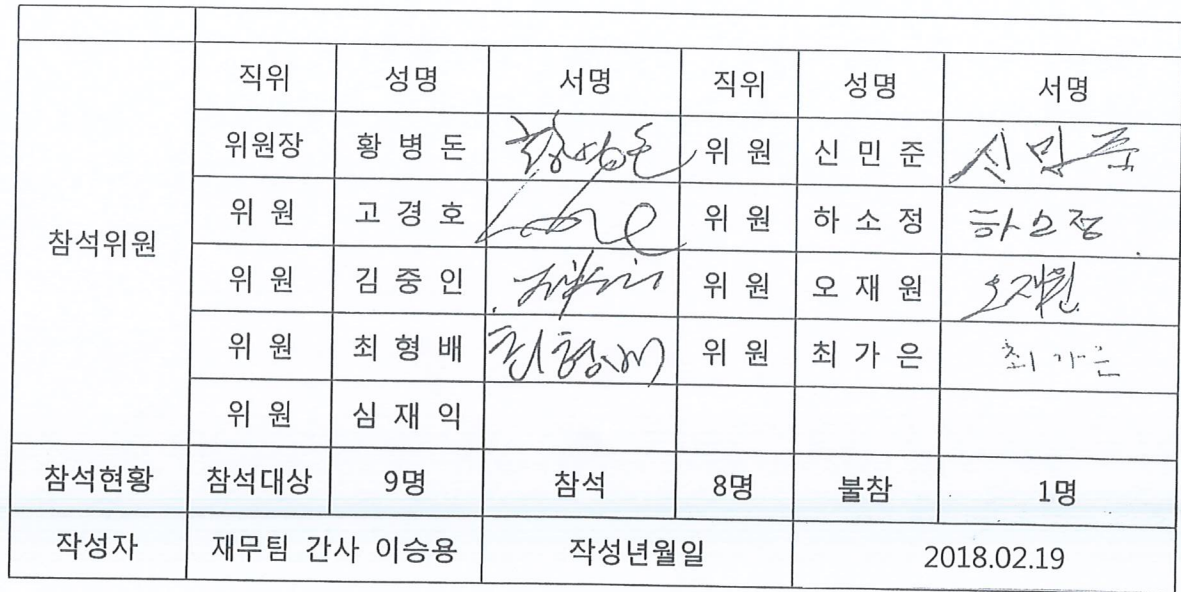 직위 성명 서명 직위 성명 서명
위원장 황 병 돈 황병돈 위 원 신 민 준 신민준
위 원 고 경 호 위 원 하 소 정 하소정
참석위원
위 원 김 중 인 위 원 오 재 원 오재원
위 원 최 형 배 최형배 위 원 최 가 은 최가은
위 원 심 재 익
참석현황 참석대상 9명 참석 8명 불참 1명
작성자 재무팀 간사 이승용 작성년월일 2018.02.19